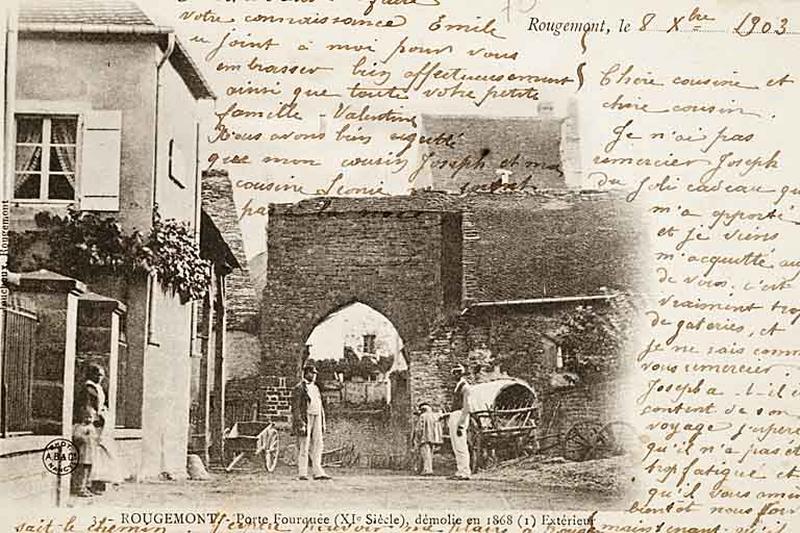 Rougemont, le 8 Xbre 1903
Chère cousine et
chère cousin.
Je n'ai pas
remercier Joseph
du joli cadeau qu
m'a apporté
et je viens
m'acquitté au
de vous. c'est
vraiment tro
de gateries, et
je ne sais comm
vous remercier.
Joseph a-t-il é
content de son
voyage j'espère
qu'il n'a pas ét
trop fatigué et
qu'il vous amè
bientot et nous
maintenant qu'il
sait le chemin.
faire
votre connaissance Emile
joint à moi pour vous
embrasser bien affectueusement
ainsi que toute votre petite
famille Valentine
Nous avons bien
que mon cousin Joseph et ma
cousine Léonie ne soient
pas
ROUGEMONT - Porte Fourquée (XIe Siècle), démolie en 1868 (1) Extérieur
Rougemont